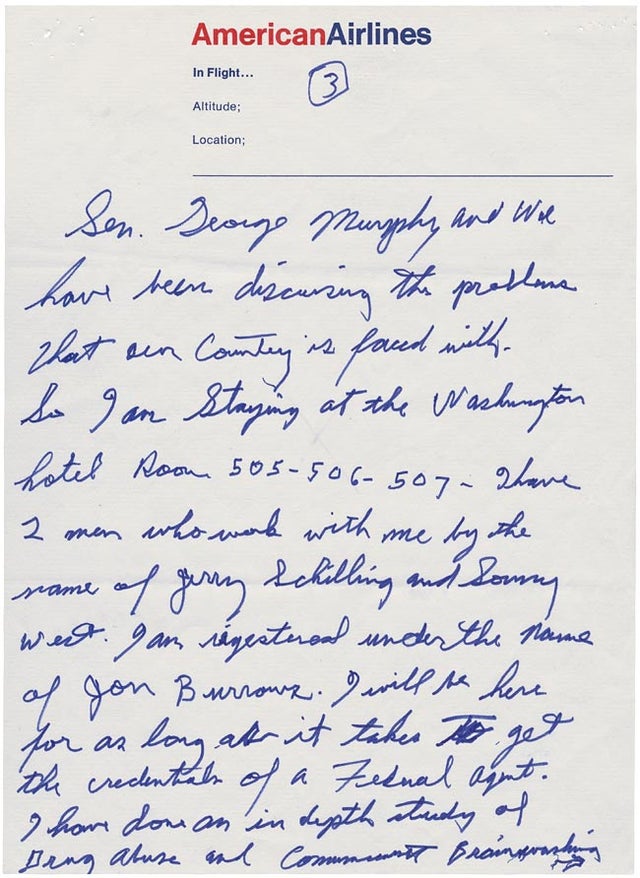 AmericanAirlines
In Flight...
3
Altitude;
Location;
Sen. George Murphy and We
have been discussing the problems
that our Country is faced with.
So I am Staying at the Washington
hotel Room 505-506-507- I have
2 men who work with me by the
name of Jerry Schilling and Sonny
West. I am registered under the name
of Jon Burrows. I will be here
for as long as it takes to get
the credentials of a Federal agent.
I have done an in depth study of
Drug Abuse and Communist Brainwashing